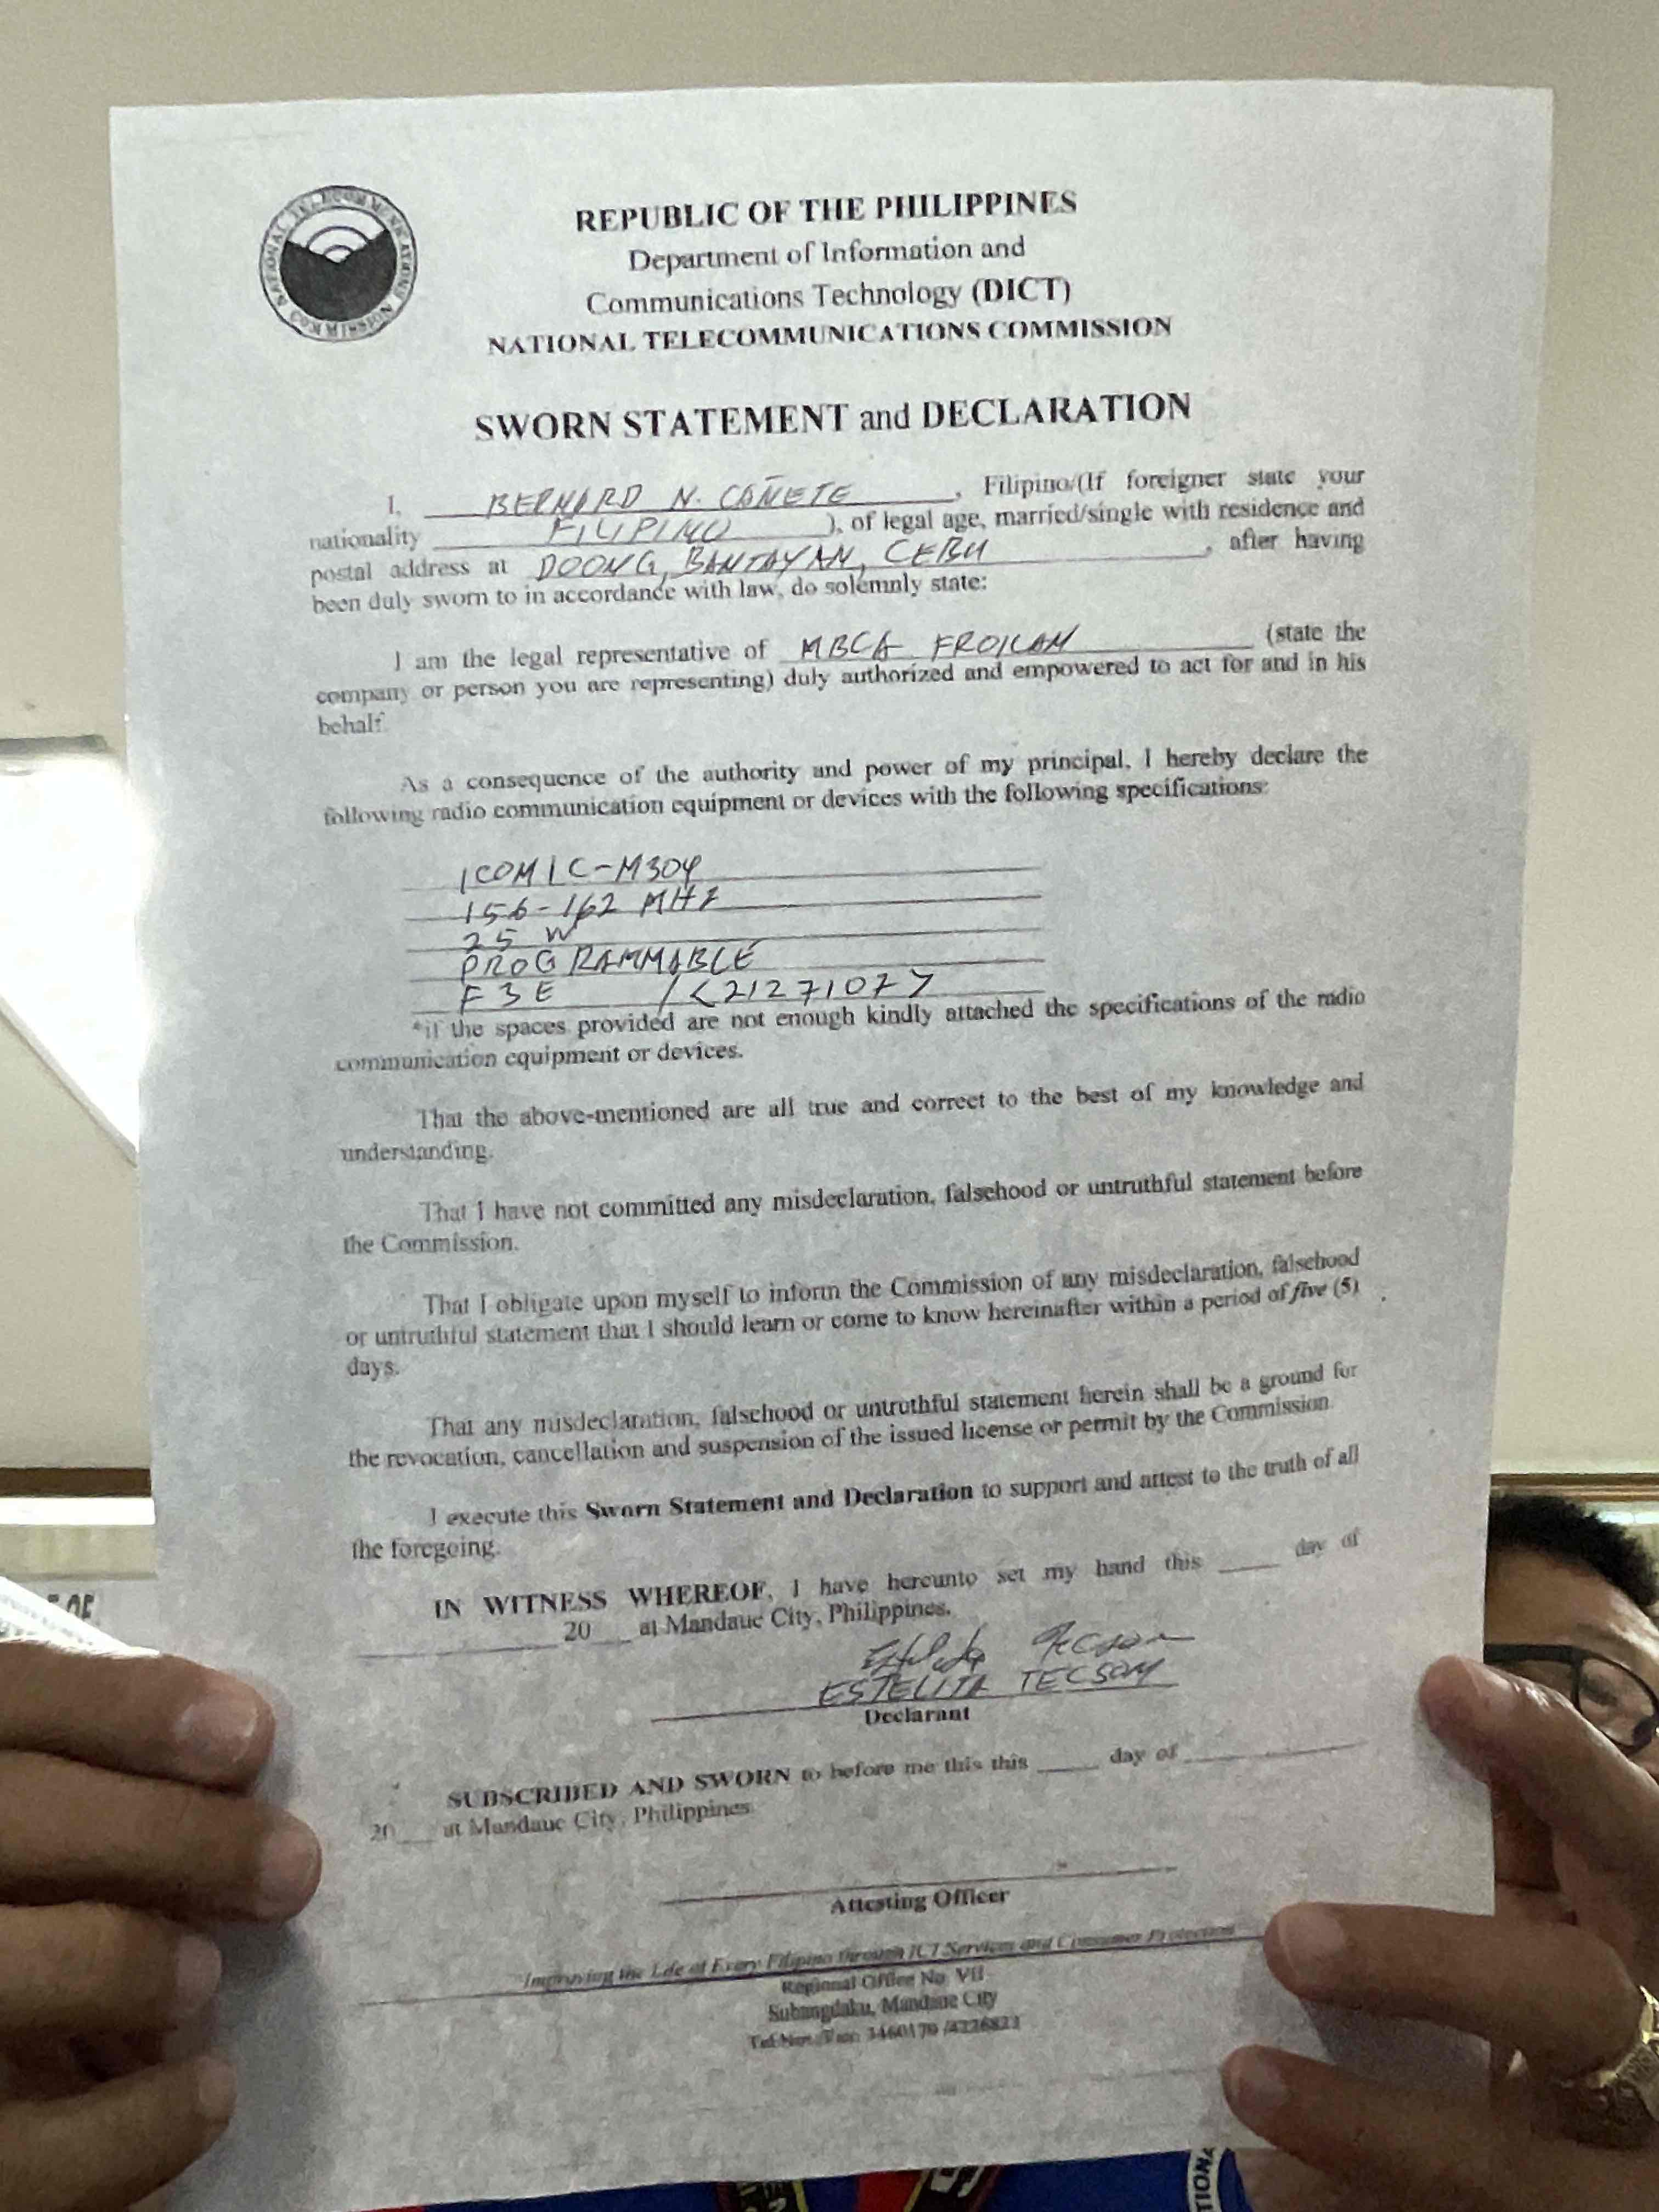 NATIONAL TELECOMMUNICATIONS COMMISSION
REPUBLIC OF THE PHILIPPINES
Department of Information and
Communications Technology (DICT)
NATIONAL TELECOMMUNICATIONS COMMISSION
SWORN STATEMENT and DECLARATION
I, BERNARD N. CAÑETE, Filipino/(If foreigner state your
nationality FILIPINO ), of legal age, married/single with residence and
postal address at DOONG, BANTAYAN, CEBU, after having
been duly sworn to in accordance with law, do solemnly state:
I am the legal representative of MBCA FROILAN (state the
company or person you are representing) duly authorized and empowered to act for and in his
behalf.
As a consequence of the authority and power of my principal, I hereby declare the
following radio communication equipment or devices with the following specifications:
ICOM IC-M304
156-162 MHZ
25 W
PROGRAMMABLE
F3E / <2127107>
*if the spaces provided are not enough kindly attached the specifications of the radio
communication equipment or devices.
That the above-mentioned are all true and correct to the best of my knowledge and
understanding.
That I have not committed any misdeclaration, falsehood or untruthful statement before
the Commission.
That I obligate upon myself to inform the Commission of any misdeclaration, falsehood
or untruthful statement that I should learn or come to know hereinafter within a period of five (5)
days.
That any misdeclaration, falsehood or untruthful statement herein shall be a ground for
the revocation, cancellation and suspension of the issued license or permit by the Commission.
I execute this Sworn Statement and Declaration to support and attest to the truth of all
the foregoing.
IN WITNESS WHEREOF, I have hereunto set my hand this ____ day of
____ 20__ at Mandaue City, Philippines.
ESTELITA TECSON
Declarant
SUBSCRIBED AND SWORN to before me this this ____ day of ____
20__ at Mandaue City, Philippines
Attesting Officer
Improving the Life of Every Filipino through ICT Services and Consumer Protection
Regional Office No. VII
Subangdaku, Mandaue City